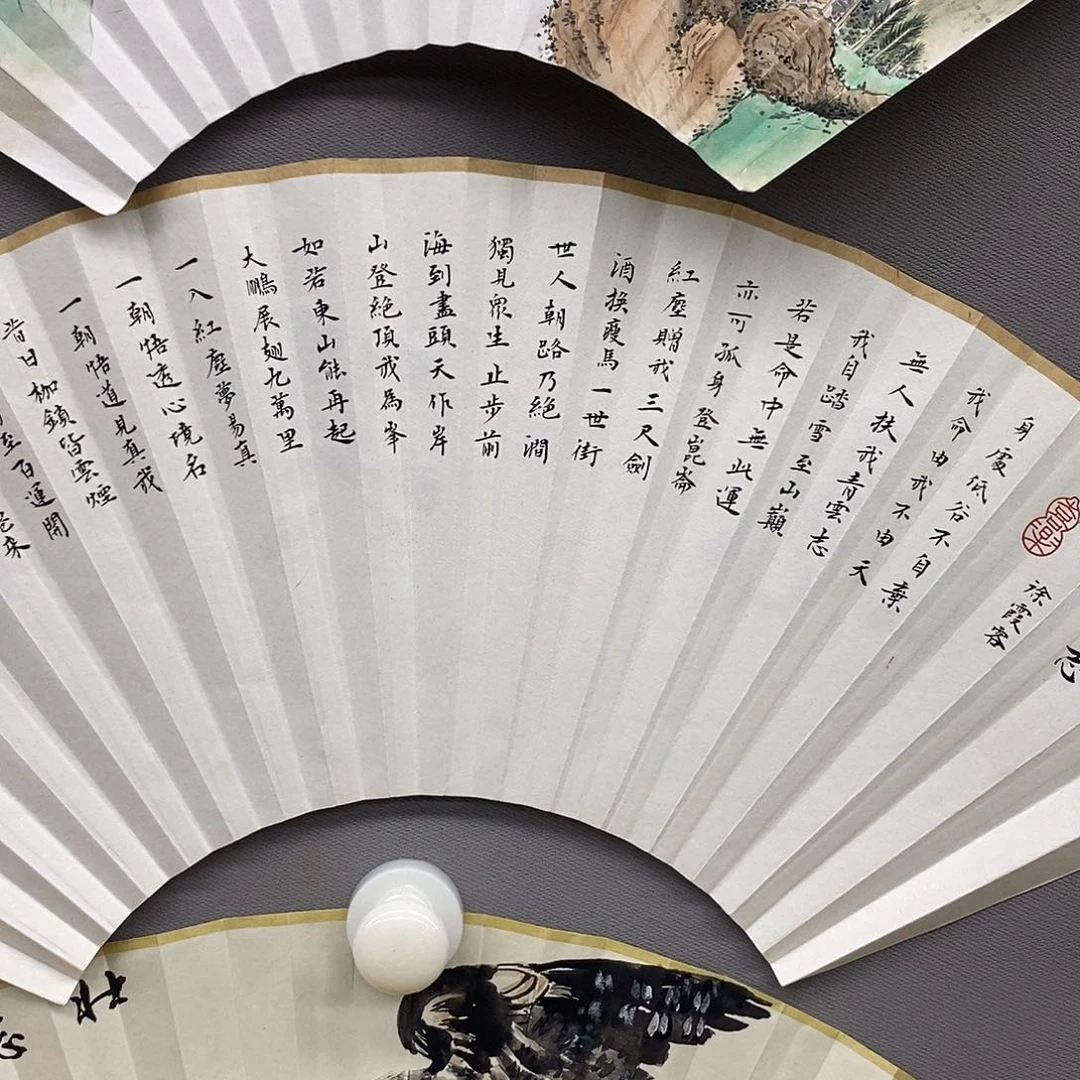 志
徐霞客
身處低谷不自棄
我命由我不由天
無人扶我青雲志
我自踏雪至山巔
若是命中無此運
亦可孤身登崑崙
紅塵贈我三尺劍
酒換瘦馬一世街
世人朝路乃絕澗
獨見眾生止步前
海到盡頭天作岸
山登絕頂我為峯
如若東山能再起
大鵬展翅九萬里
一入紅塵夢易真
一朝悟透心境名
一朝悟道見真我
昔日枷鎖皆雲煙
至百運開
來